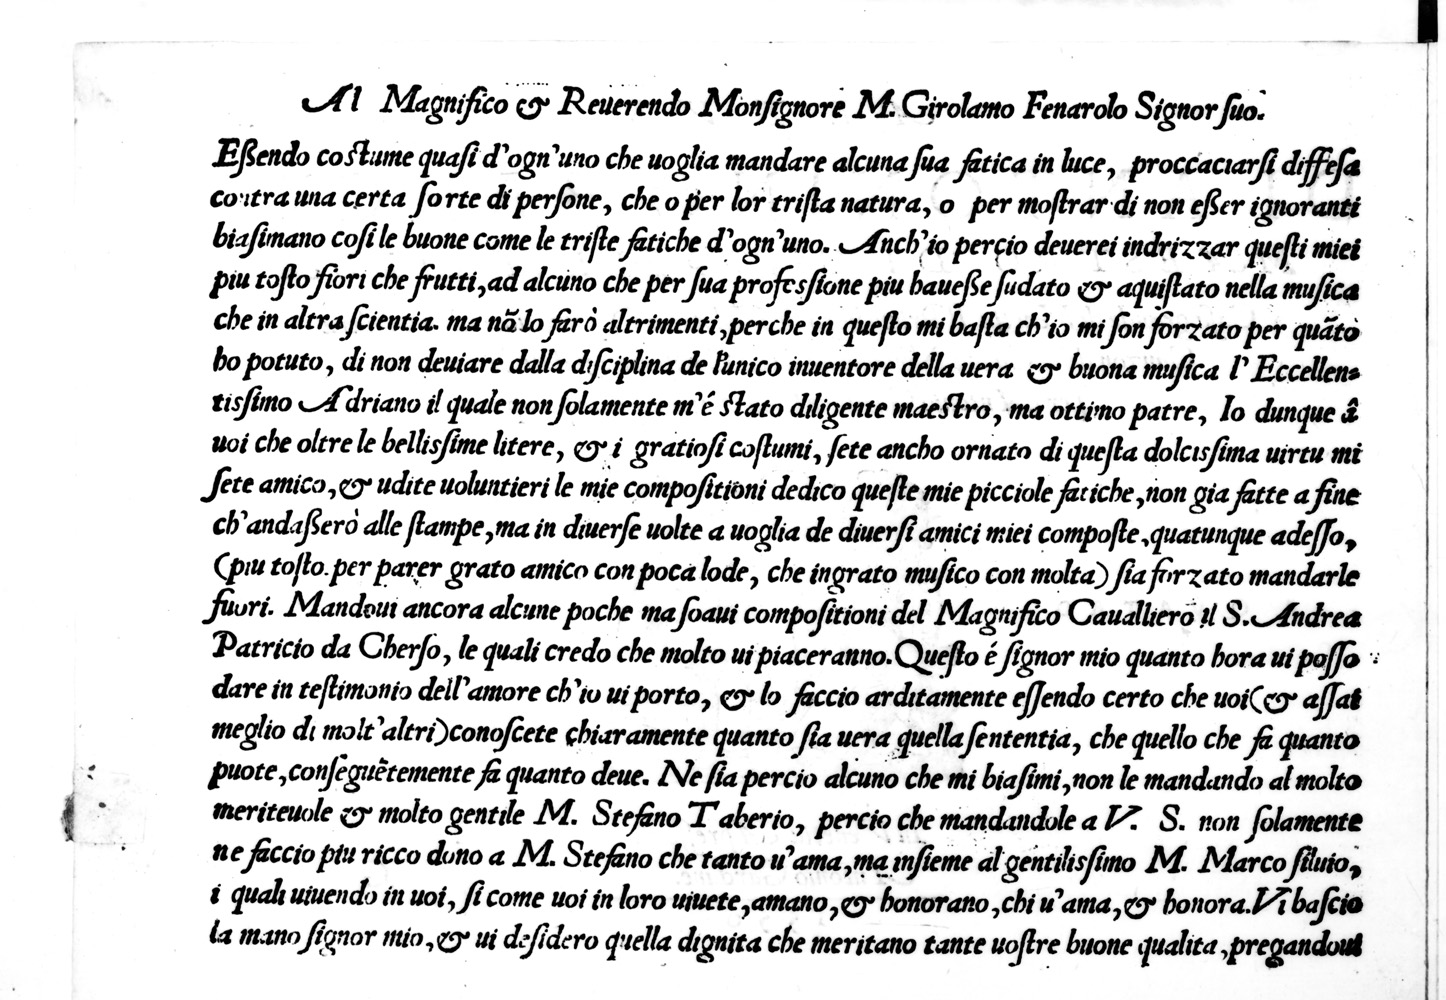 Al Magnifico & Reuerendo Monsignore M. Girolamo Fenarolo Signor suo.
Eßendo costume quasi d'ogn'uno che uoglia mandare alcuna sua fatica in luce, proccaciarsi diffesa
contra una certa sorte di persone, che o per lor trista natura, o per mostrar di non eßer ignoranti
biasimano cosi le buone come le triste fatiche d'ogn'uno. Anch'io percio deuerei indrizzar questi miei
piu tosto fiori che frutti, ad alcuno che per sua professione piu haueße sudato & aquistato nella musica
che in altra scientia. ma nõ lo farò altrimenti, perche in questo mi basta ch'io mi son forzato per quãto
ho potuto, di non deuiare dalla disciplina de l'unico inuentore della uera & buona musica l'Eccellen-
tissimo Adriano il quale non solamente m'é stato diligente maestro, ma ottimo patre, Io dunque â
uoi che oltre le bellissime litere, & i gratiosi costumi, sete ancho ornato di questa dolcissima uirtu mi
sete amico, & udite uoluntieri le mie compositioni dedico queste mie picciole fatiche, non gia fatte a fine
ch'andaßerò alle stampe, ma in diuerse uolte a uoglia de diuersi amici miei composte, quatunque adesso,
(piu tosto per parer grato amico con poca lode, che ingrato musico con molta) sia forzato mandarle
fuori. Mandoui ancora alcune poche ma soaui compositioni del Magnifico Caualliero il S. Andrea
Patricio da Cherso, le quali credo che molto ui piaceranno. Questo é signor mio quanto hora ui posso
dare in testimonio dell'amore ch'io ui porto, & lo faccio arditamente essendo certo che uoi (& assai
meglio di molt'altri) conoscete chiaramente quanto sia uera quella sententia, che quello che fa quanto
puote, conseguẽtemente fa quanto deue. Ne sia percio alcuno che mi biasimi, non le mandando al molto
meriteuole & molto gentile M. Stefano Taberio, percio che mandandole a V. S. non solamente
ne faccio piu ricco dono a M. Stefano che tanto u'ama, ma insieme al gentilissimo M. Marco siluio,
i quali uiuendo in uoi, si come uoi in loro uiuete, amano, & honorano, chi u'ama, & honora. Vi bascio
la mano signor mio, & ui desidero quella dignita che meritano tante uostre buone qualita, pregandoui